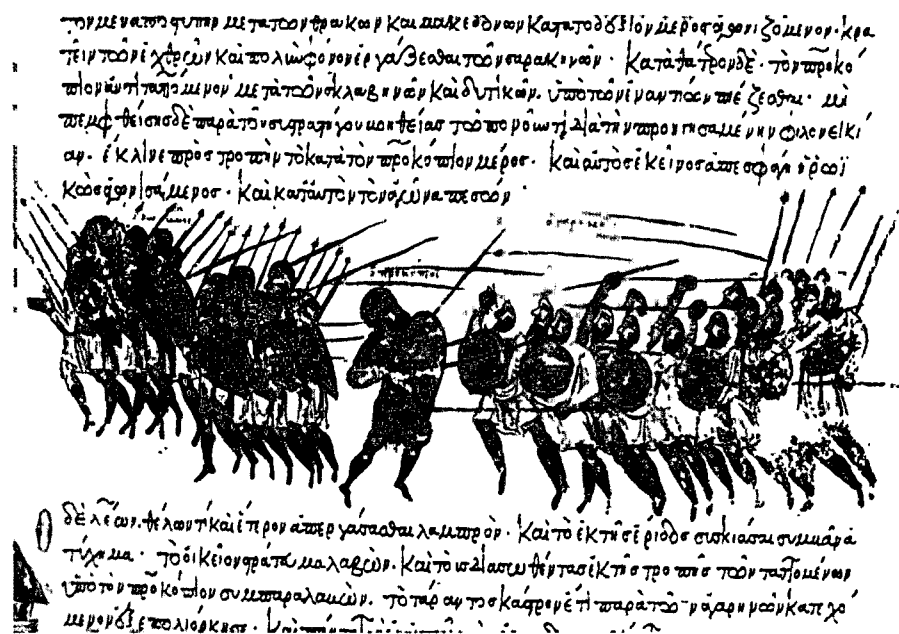 μετὰ τῶν θρακῶν καὶ μακεδόνων κατὰ τὸ δεξιὸν μέρος ἀγωνιζόμενον· κρα
τεῖν τῶν ἐχθρῶν καὶ πολὺν φόνον ἐργάζεσθαι τῶν σαρακηνῶν· κατὰ θάτρον δὲ· τὸν προκό
πιον ἀντιταττόμενον μετὰ τῶν σκλαβηνῶν καὶ δυτικῶν. ὑπὸ τῶν ἐναντίων πιέζεσθαι· μὴ
πεμφθείσης δὲ παρὰ τοῦ συστρατήγου βοηθείας τῷ πονοῦντι διὰ τὴν προηγησαμένην φιλονεικί
αν. ἔκλινε πρὸς τροπὴν τὸ κατὰ τὸν προκόπιον μέρος· καὶ αὐτὸς ἐκεῖνος ἀπεσφάγη ἡρωϊ
κῶς ἀγωνισάμενος· καὶ κατ' αὐτὸν τὸν ἀγῶνα πεσών·
ὁ προκόπιος
Ὁ δὲ λέων. θέλων τι καὶ ἕτερον ἀπεργάσασθαι λαμπρὸν· καὶ τὸ ἐκ τῆς ἔριδος συσκιάσαι
τύχημα· τὸ οἰκεῖον στράτευμα λαβὼν. καὶ τοὺς διασωθέντας ἐκ τῆς τροπῆς τῶν ταττομένων
ὑπὸ τὸν προκόπιον συμπαραλαβών. τὸ τάραντος κάστρον ἔτι παρὰ τῶν ἀγαρηνῶν κατεχό
μενον ἐξεπολιόρκησε· καὶ